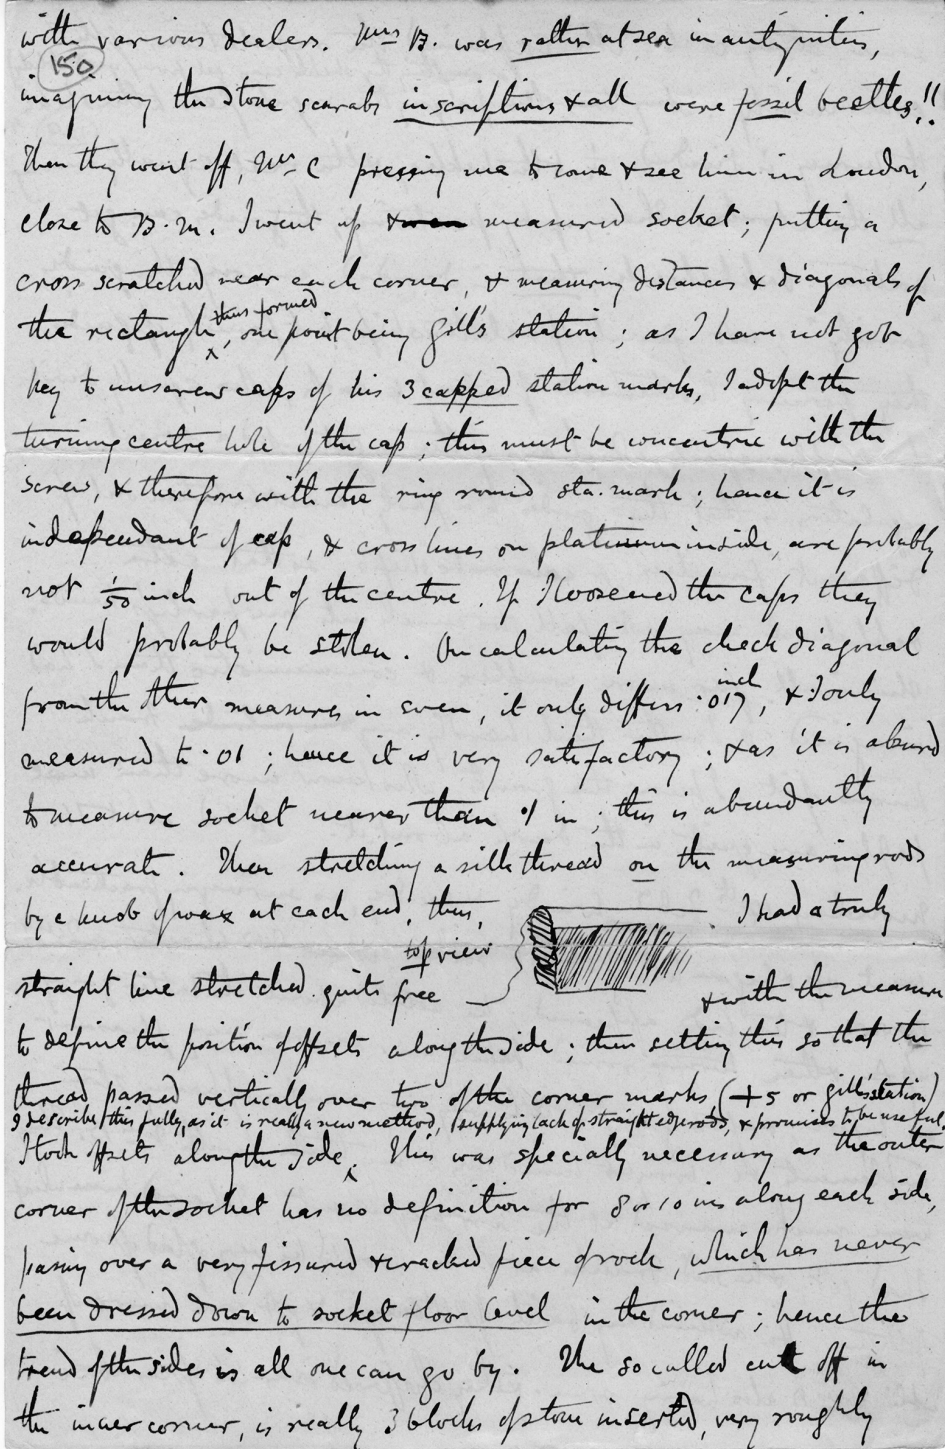 with various dealers. Mrs B. was rather at sea in antiquities,
150
imagining the stone scarabs inscriptions & all were fossil beetles!!
Then they went off, Mr C pressing me to come & see him in London,
close to B.M. I went up & measured socket; putting a
cross scratched near each corner, & measuring distances & diagonals of
thus formed
the rectangle ^, one point being Gill's station; as I have not got
key to unscrew caps of his 3 capped station marks, I adopt the
turning centre hole of the cap; this must be concentric with the
screw, & therefore with the ring round sta. mark; hence it is
independant of cap, & cross lines on platinum inside, are probably
not 1/50 inch out of the centre. If I loosened the caps they
would probably be stolen. On calculating the check diagonal
from the other measures in even, it only differs ·017 inch, & I only
measured to ·01; hence it is very satisfactory; & as it is absurd
to measure socket nearer than ·1 in; this is abundantly
accurate. Then stretching a silk thread on the measuring rods
by a knob of wax at each end, thus, I had a truly
top view
straight line stretched quite free & with the measure
to define the position of offsets along the side; then setting this so that the
thread passed vertically over two of the corner marks (+s or Gill's station)
I describe this fully, as it is really a new method, supplying lack of straight edge rods, & promises to be useful.
I took offsets along the side ^. This was specially necessary as the outer
corner of the socket has no definition for 8 or 10 ins along each side,
passing over a very fissured & cracked piece of rock, which has never
been dressed down to socket floor level in the corner; hence the
trend of the sides is all one can go by. The so called cut off in
the inner corner, is really 3 blocks of stone inserted, very roughly